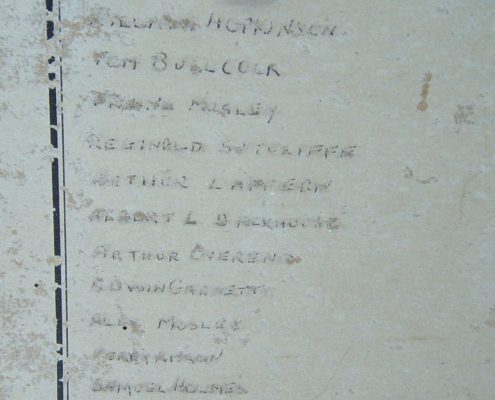 HOPKINSON
TOM BULLCOCK
FRANK MOSLEY
REGINALD SUTCLIFFE
ARTHUR LAMBERN
ALBERT L BACKHOUSE
ARTHUR OVEREND
EDWIN GARNETT
ALBT MOSLEY
SAMUEL HOLMES